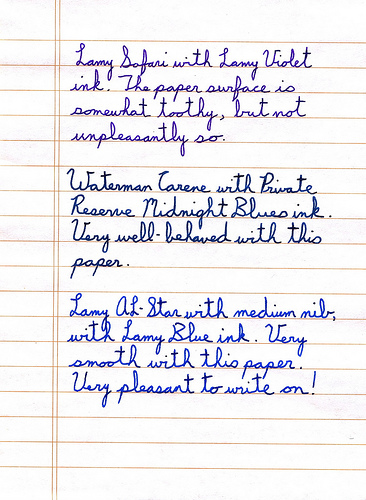 Lamy Safari with Lamy Violet
ink. The paper surface is
somewhat toothy, but not
unpleasantly so.
Waterman Carene with Private
Reserve Midnight Blues ink.
Very well-behaved with this
paper.
Lamy AL-Star with medium nib,
with Lamy Blue ink. Very
smooth with this paper.
Very pleasant to write on!